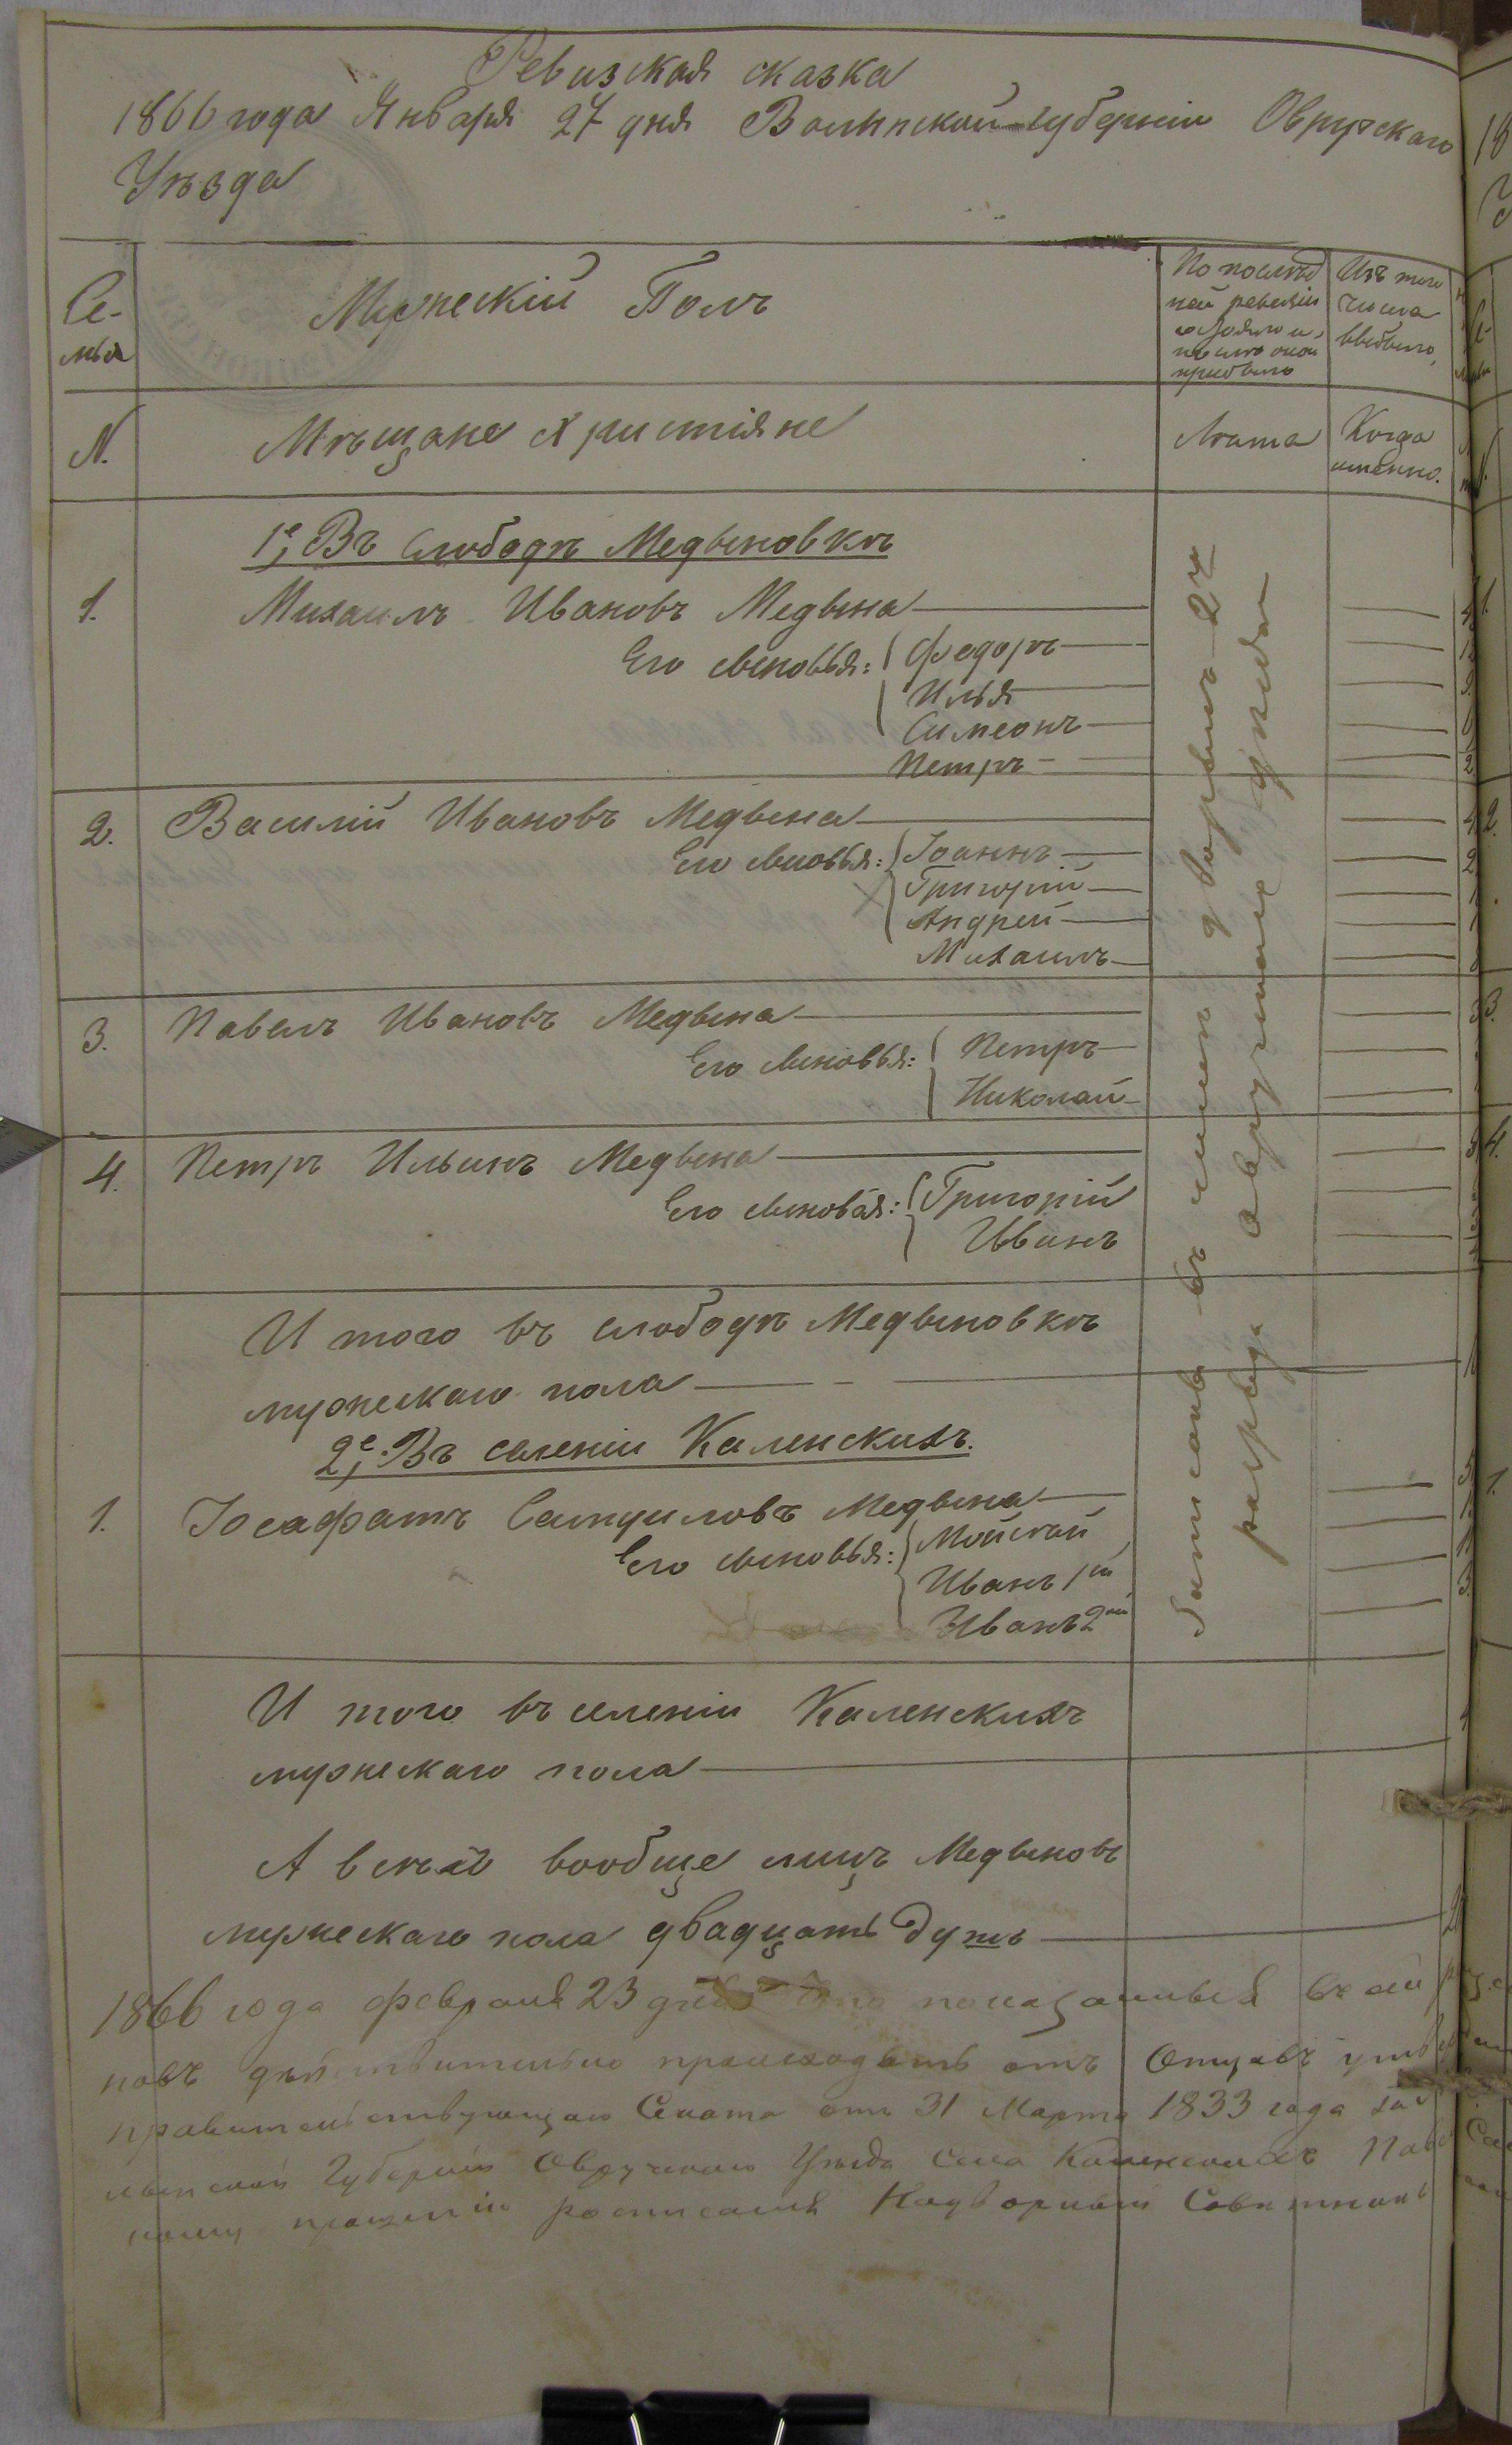 Ревизская сказка
1866 года Января 27 дня Волынской губерніи Овручскаго
Уѣзда
Се-
мья
Мужескій Полъ
По послѣд
ней ревизіи
состояло и
послѣ оной
прибыло
Изъ того
числа
выбыло,
N.
Мѣщане христіяне
Лѣта
Когда
именно.
1е, Въ Слободѣ Медыновкѣ
1.
Михаилъ Ивановъ Медына
Его сыновья: Федоръ
Илья
Симеонъ
Петръ
2.
Василій Ивановъ Медына
Его сыновья: Іоаннъ
Григорій
Андрей
Михаилъ
3.
Павелъ Ивановъ Медына
Его сыновья: Петръ
Николай
4.
Петръ Ильинъ Медына
Его сыновья: Григорій
Иванъ
И того въ слободѣ Медыновкѣ
мужескаго пола
2е, Въ селеніи Каленскихъ.
1.
Іосафатъ Самуиловъ Медына
Его сыновья: Мойсей
Иванъ 1й
Иванъ 2й
И того въ селеніи Каленскихъ
мужескаго пола
А всѣхъ вообще лицъ Медыновъ
мужескаго пола двадцать душъ
1866 года февраля 23 дня что показанныя въ сей
новъ дѣйствительно происходятъ отъ Отцовъ
правительствующаго Сената отъ 31 Марта 1833 года
лынской Губерніи Овручскаго Уѣзда Села Каленскихъ
ному прошенію росписался Надворный Совѣтникъ
овручскаго уѣзда